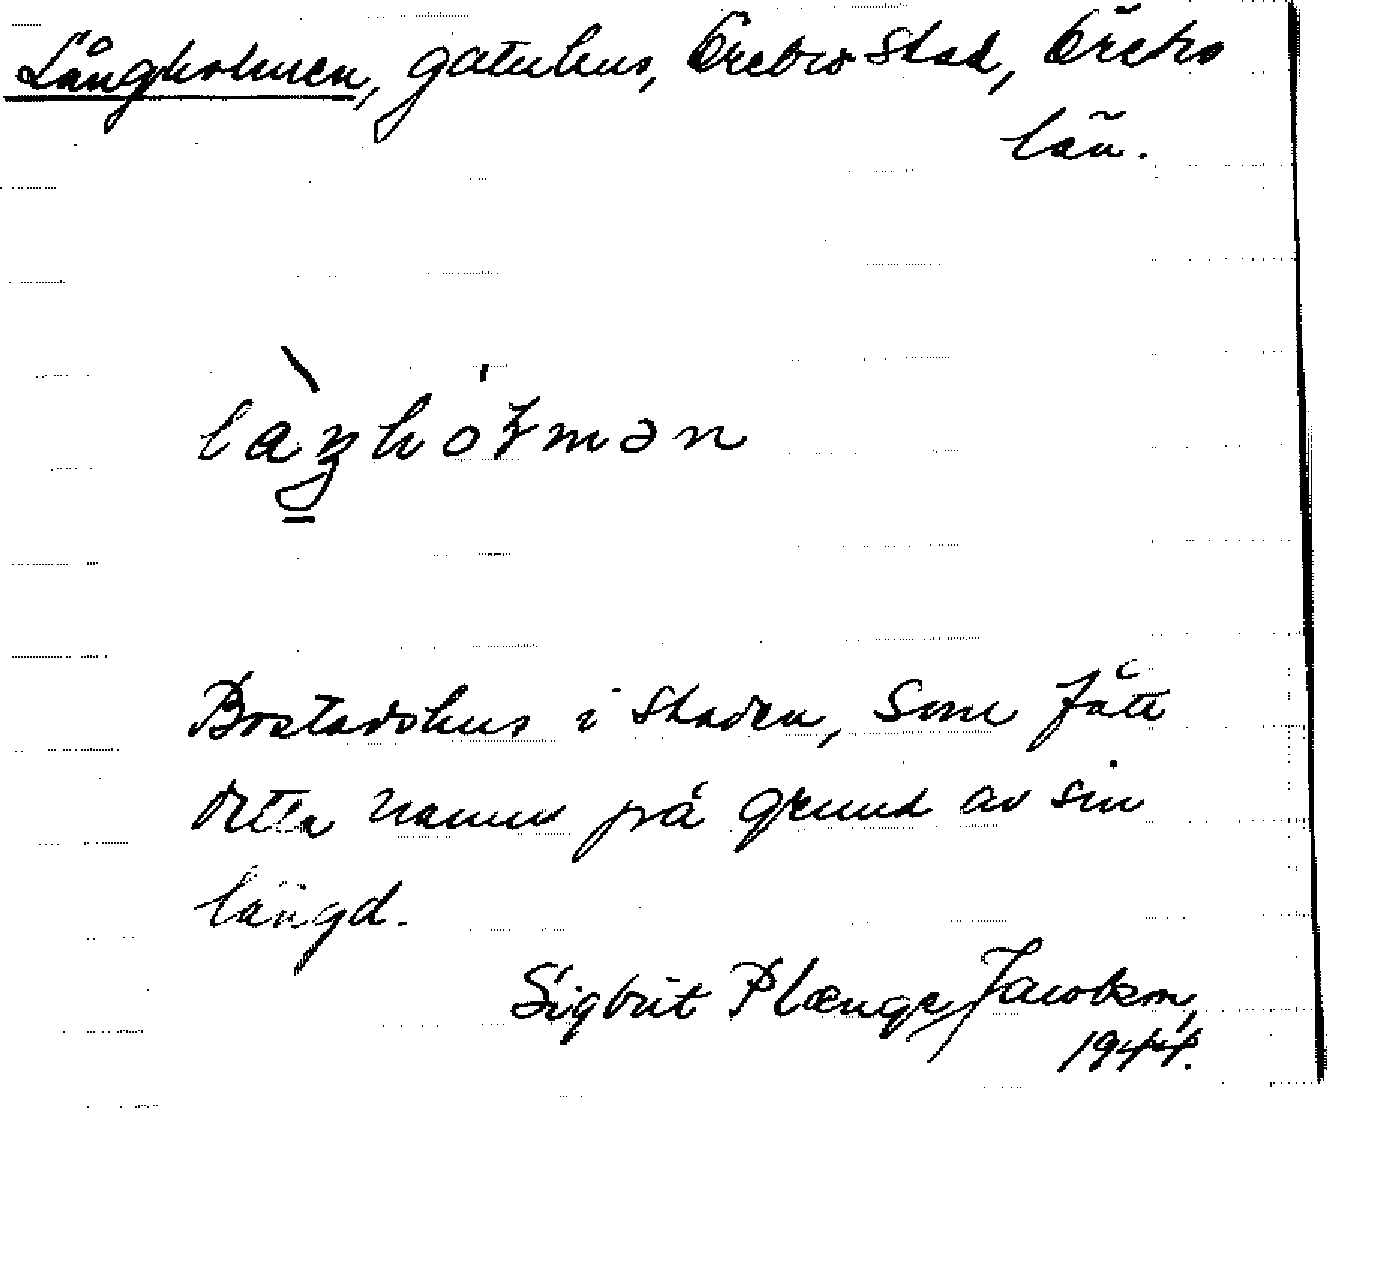 Långholmen, gatuhus, Örebro Stad, Örebro
län.
Bostadshus i staden, som fått
detta namn på grund av sin
längd.
Sigbrit Plænge Jacobson,
1944.